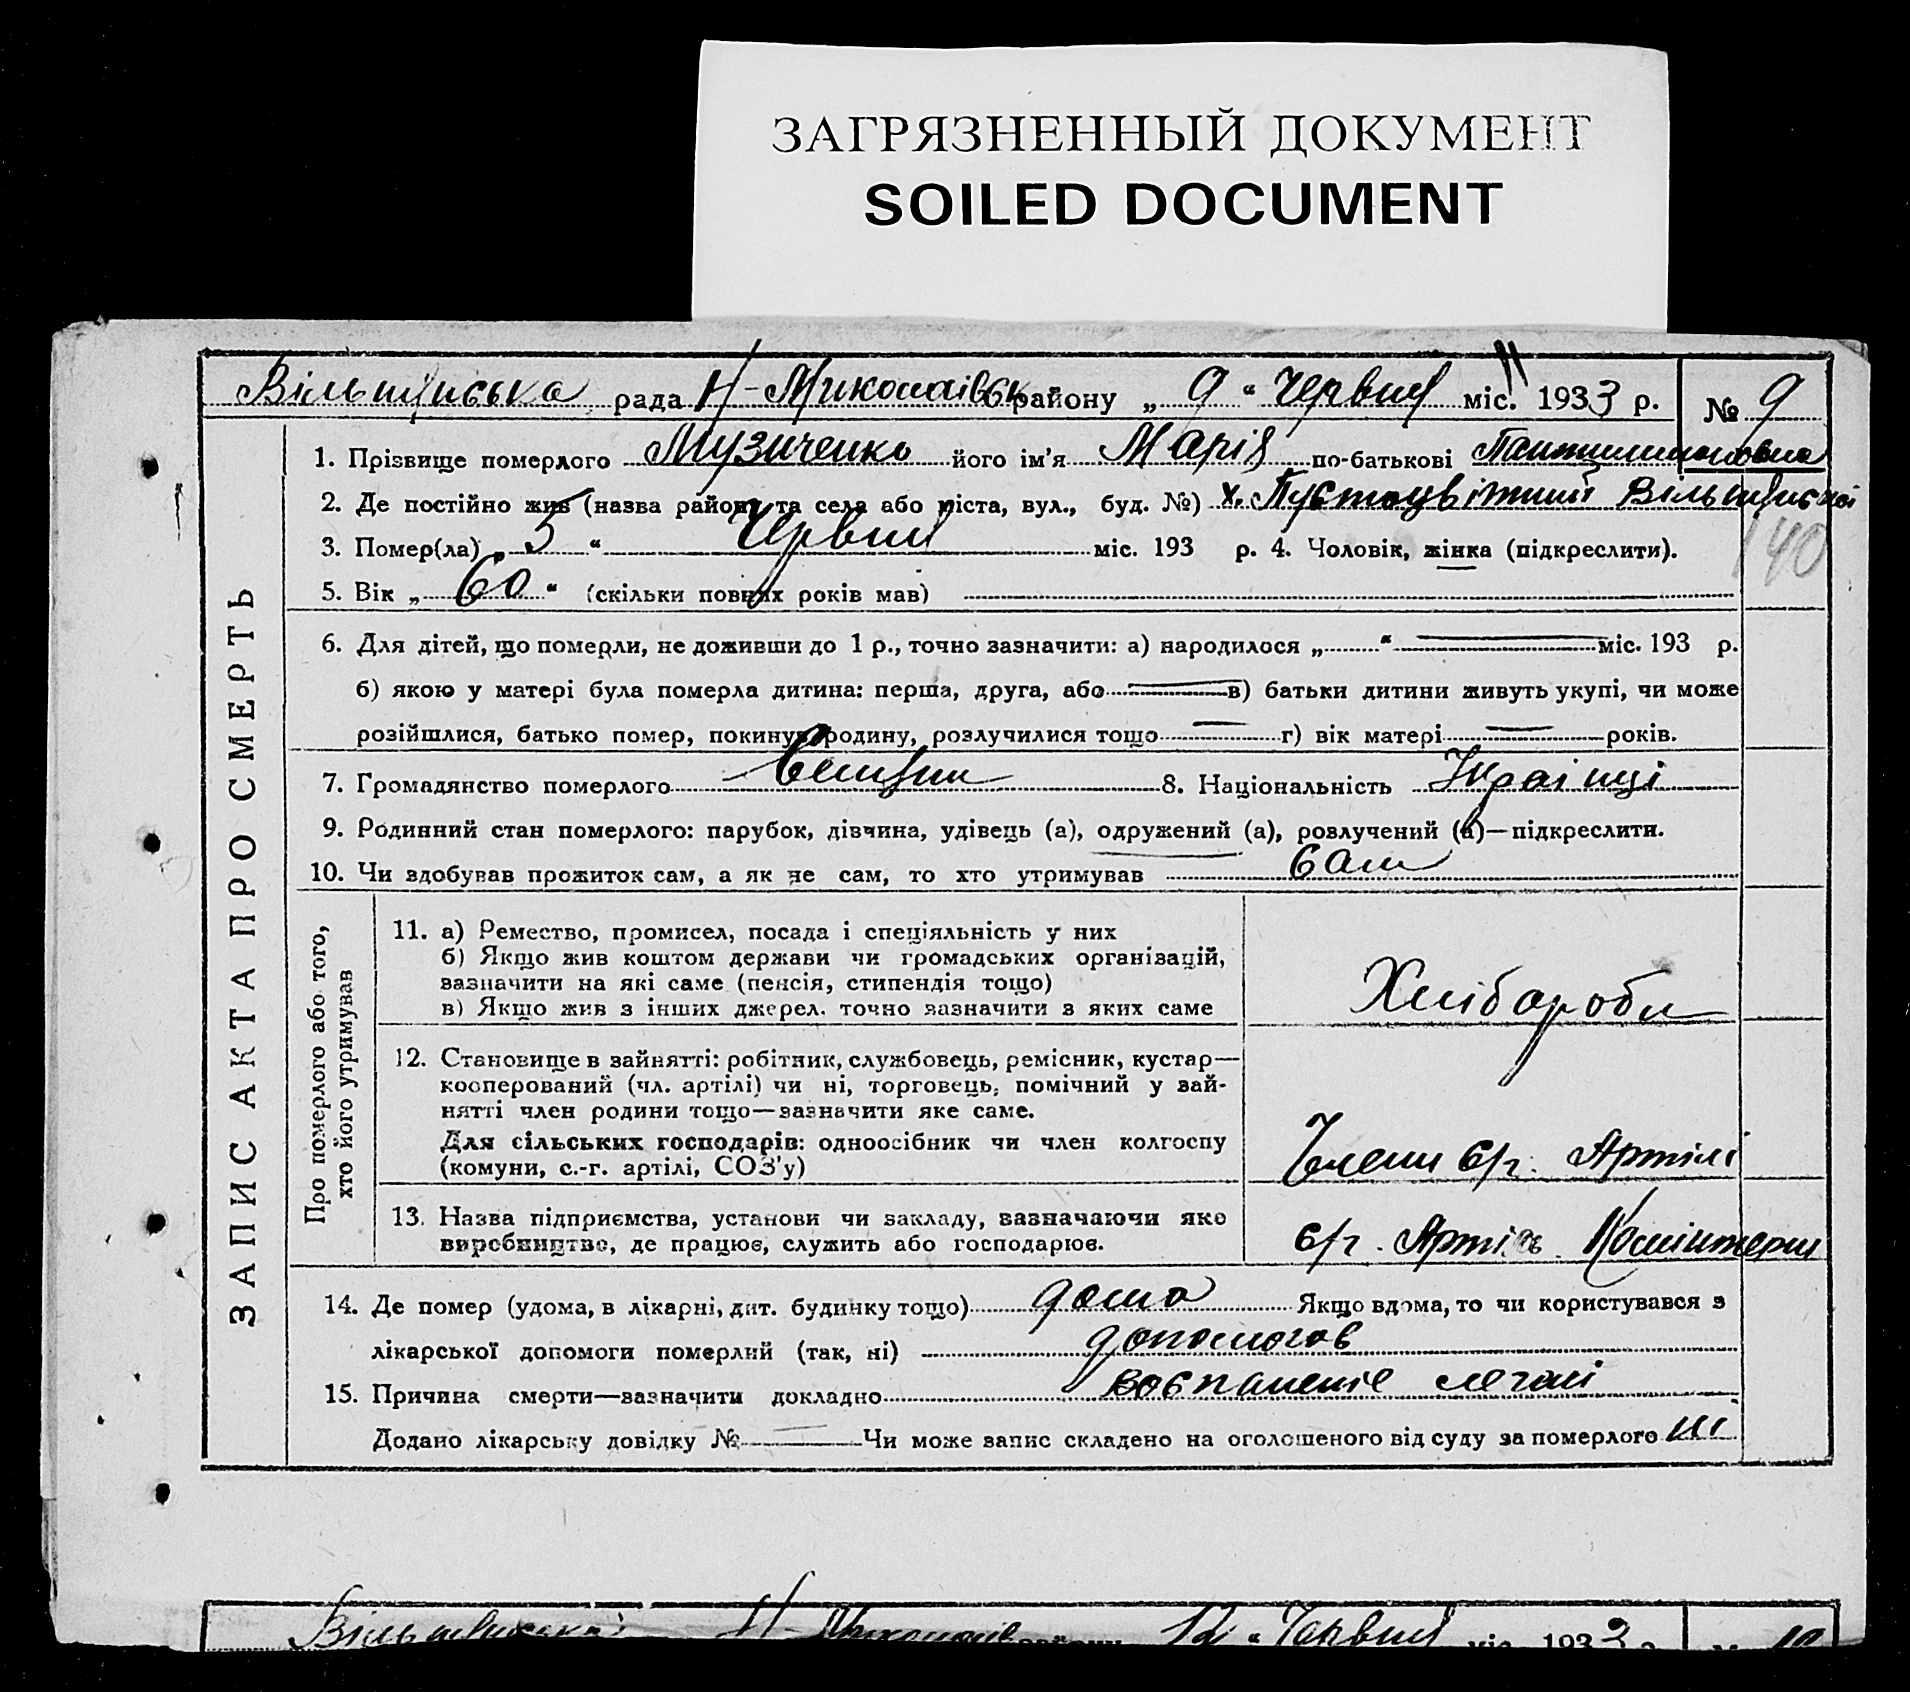 ЗАГРЯЗНЕННЫЙ ДОКУМЕНТ
SOILED DOCUMENT
рада Н-Миколаівськ району „ 9 “ Червня міс. 1933 р. № 9
1. Прізвище померлого Музиченко його ім’я Марія по-батькові
2. Де постійно жив (назва району та села або міста, вул., буд. №) х. Пустоцвітний
140
3. Помер(ла) „ 5 “ Червня міс. 193 р. 4. Чоловік, жінка (підкреслити).
5. Вік „ 60 “ (скільки повних років мав)
6. Для дітей, що померли, не доживши до 1 р., точно зазначити: а) народилося „ “ міс. 193 р.
б) якою у матері була померла дитина: перша, друга, або в) батьки дитини живуть укупі, чи може
розійшлися, батько помер, покинув родину, розлучилися тощо г) вік матері років.
7. Громадянство померлого 8. Національність Украінці
9. Родинний стан померлого: парубок, дівчина, удівець (а), одружений (а), розлучений (а)—підкреслити.
10. Чи здобував прожиток сам, а як не сам, то хто утримував сам
ЗАПИС АКТА ПРО СМЕРТЬ
Про померлого або того,
хто його утримував
11. а) Ремество, промисел, посада і спеціяльність у них
б) Якщо жив коштом держави чи громадських організацій,
зазначити на які саме (пенсія, стипендія тощо)
в) Якщо жив з інших джерел. точно зазначити з яких саме
Хлібароби
12. Становище в зайнятті: робітник, службовець, ремісник, кустар—
кооперований (чл. артілі) чи ні, торговець, помічний у зай-
нятті член родини тощо—зазначити яке саме.
Для сільських господарів: одноосібник чи член колгоспу
(комуни, с.-г. артілі, СОЗ’у)
Члени с/г. Артілі
13. Назва підприємства, установи чи закладу, зазначаючи яке
виробництво, де працює, служить або господарює.
с/г. Артіль Комінтерн
14. Де помер (удома, в лікарні, дит. будинку тощо) дома Якщо вдома, то чи користувався з
лікарської допомоги померлий (так, ні) допомогав
15. Причина смерти—зазначити докладно воспаленіе легані
Додано лікарську довідку № Чи може запис складено на оголошеного від суду за померлого ні
Н- 12 “ Червня міс. 1933 р. № 10